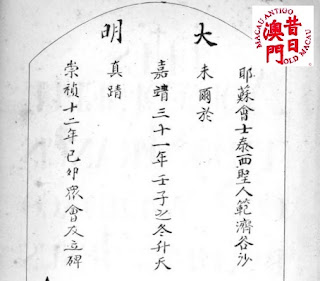 大明
耶蘇會士泰西聖人範濟谷沙
未爾於
嘉靖三十一年壬子之冬升天
真蹟
崇禎十二年己卯眾會友立碑
MACAU ANTIGO
昔日
澳門
OLD MACAU